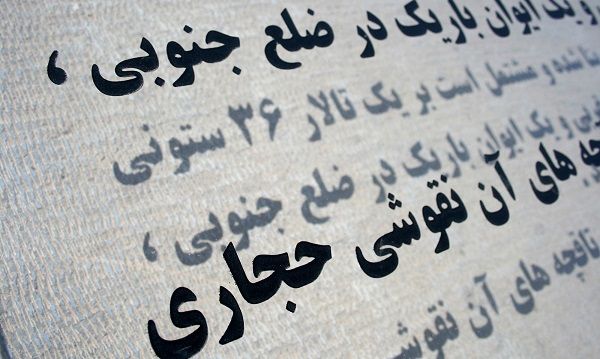 و یک ایوان باریک در ضلع جنوبی ،
شده و مشتمل است بر یک تالار ۳۶ ستونی
و یک ایوان باریک در ضلع جنوبی ،
های آن نقوشی حجاری
تاقچه های آن نقوشی